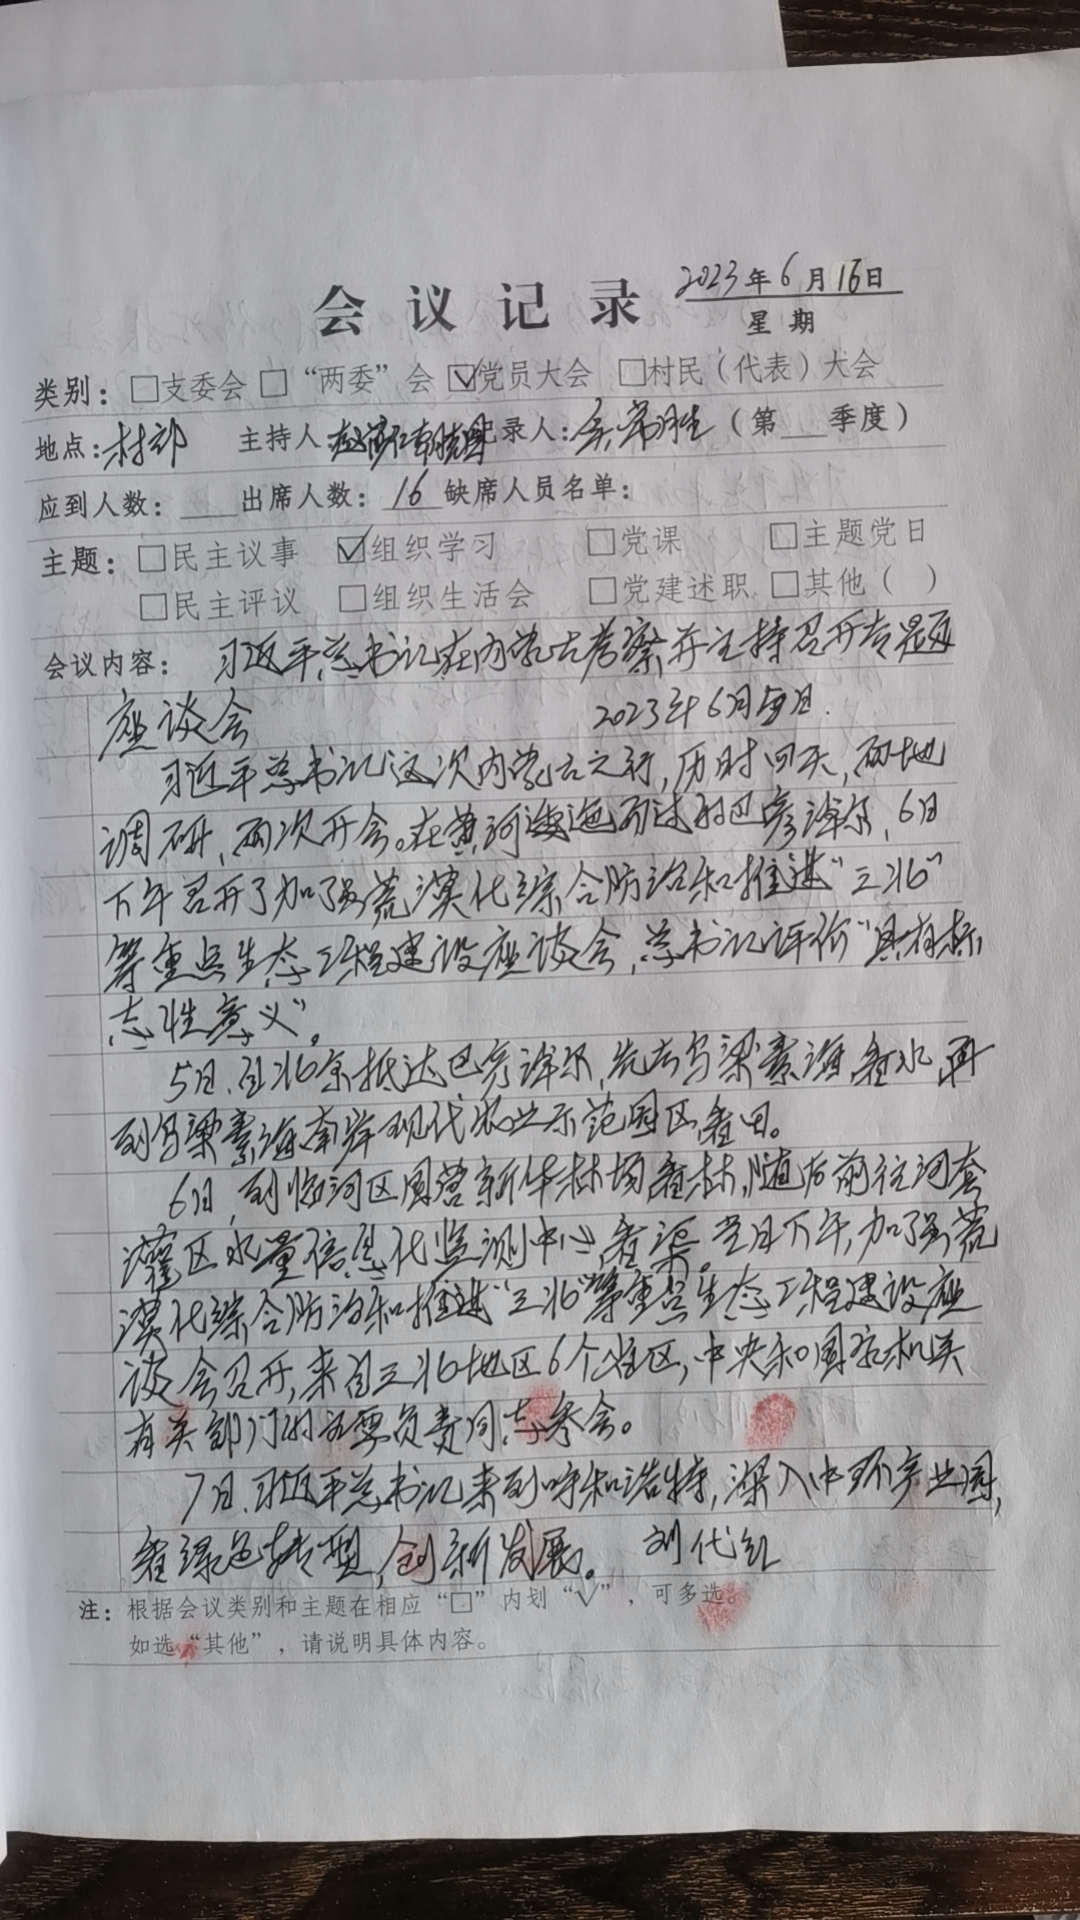 会议记录
2023年6月16日
星期
类别：□支委会 □“两委”会 ☑党员大会 □村民（代表）大会
地点：村部 主持人 记录人： （第__季度）
应到人数：____出席人数：16 缺席人员名单：
主题：□民主议事 ☑组织学习 □党课 □主题党日
□民主评议 □组织生活会 □党建述职 □其他（ ）
会议内容： 习近平总书记在内蒙古考察并主持召开专题
座谈会 2023年6月 日.
习近平总书记这次内蒙古之行，历时四天，两地
调研，两次开会。在黄河逶迤而过的巴彦淖尔，6日
下午召开了加强荒漠化综合防治和推进“三北”
等重点生态工程建设座谈会，总书记评价“具有标
志性意义”。
5日，自北京抵达巴彦淖尔，先去乌梁素海看水，再
到乌梁素海南岸现代农业示范园区看田。
6日，到临河区国营新华林场看林，随后前往河套
灌区水量信息化监测中心看渠。当日下午，加强荒
漠化综合防治和推进“三北”等重点生态工程建设座
谈会召开，来自三北地区6个省区，中央和国家机关
有关部门的主要负责同志参会。
7日，习近平总书记来到呼和浩特，深入中环产业园，
看绿色转型，创新发展。 刘代红
注：根据会议类别和主题在相应“□”内划“√”，可多选。
如选“其他”，请说明具体内容。